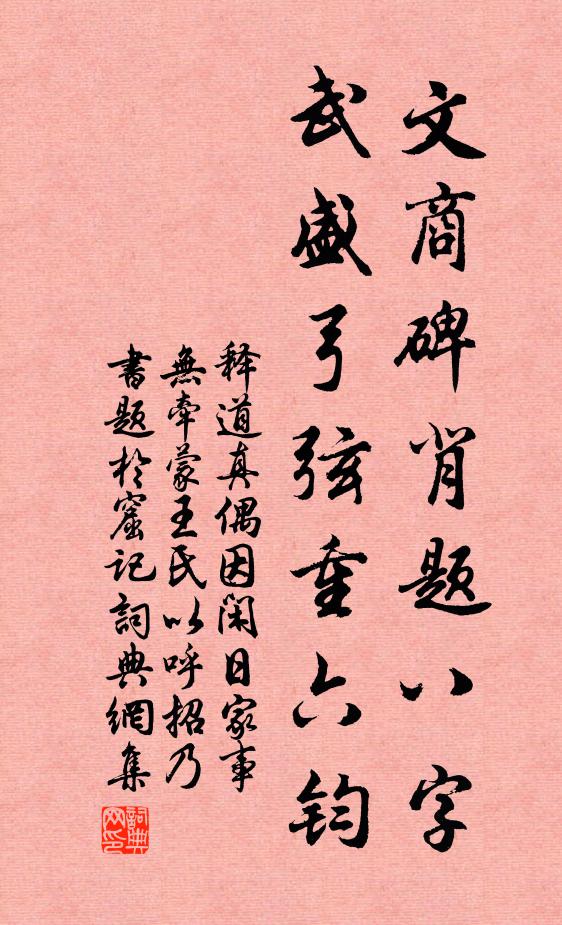 文商碑背题八字
武盛弓弦重六钧
释道真偶因闲日家事
無牵蒙王氏以呼招乃
書题於窟记詞典網集
詞典
网印